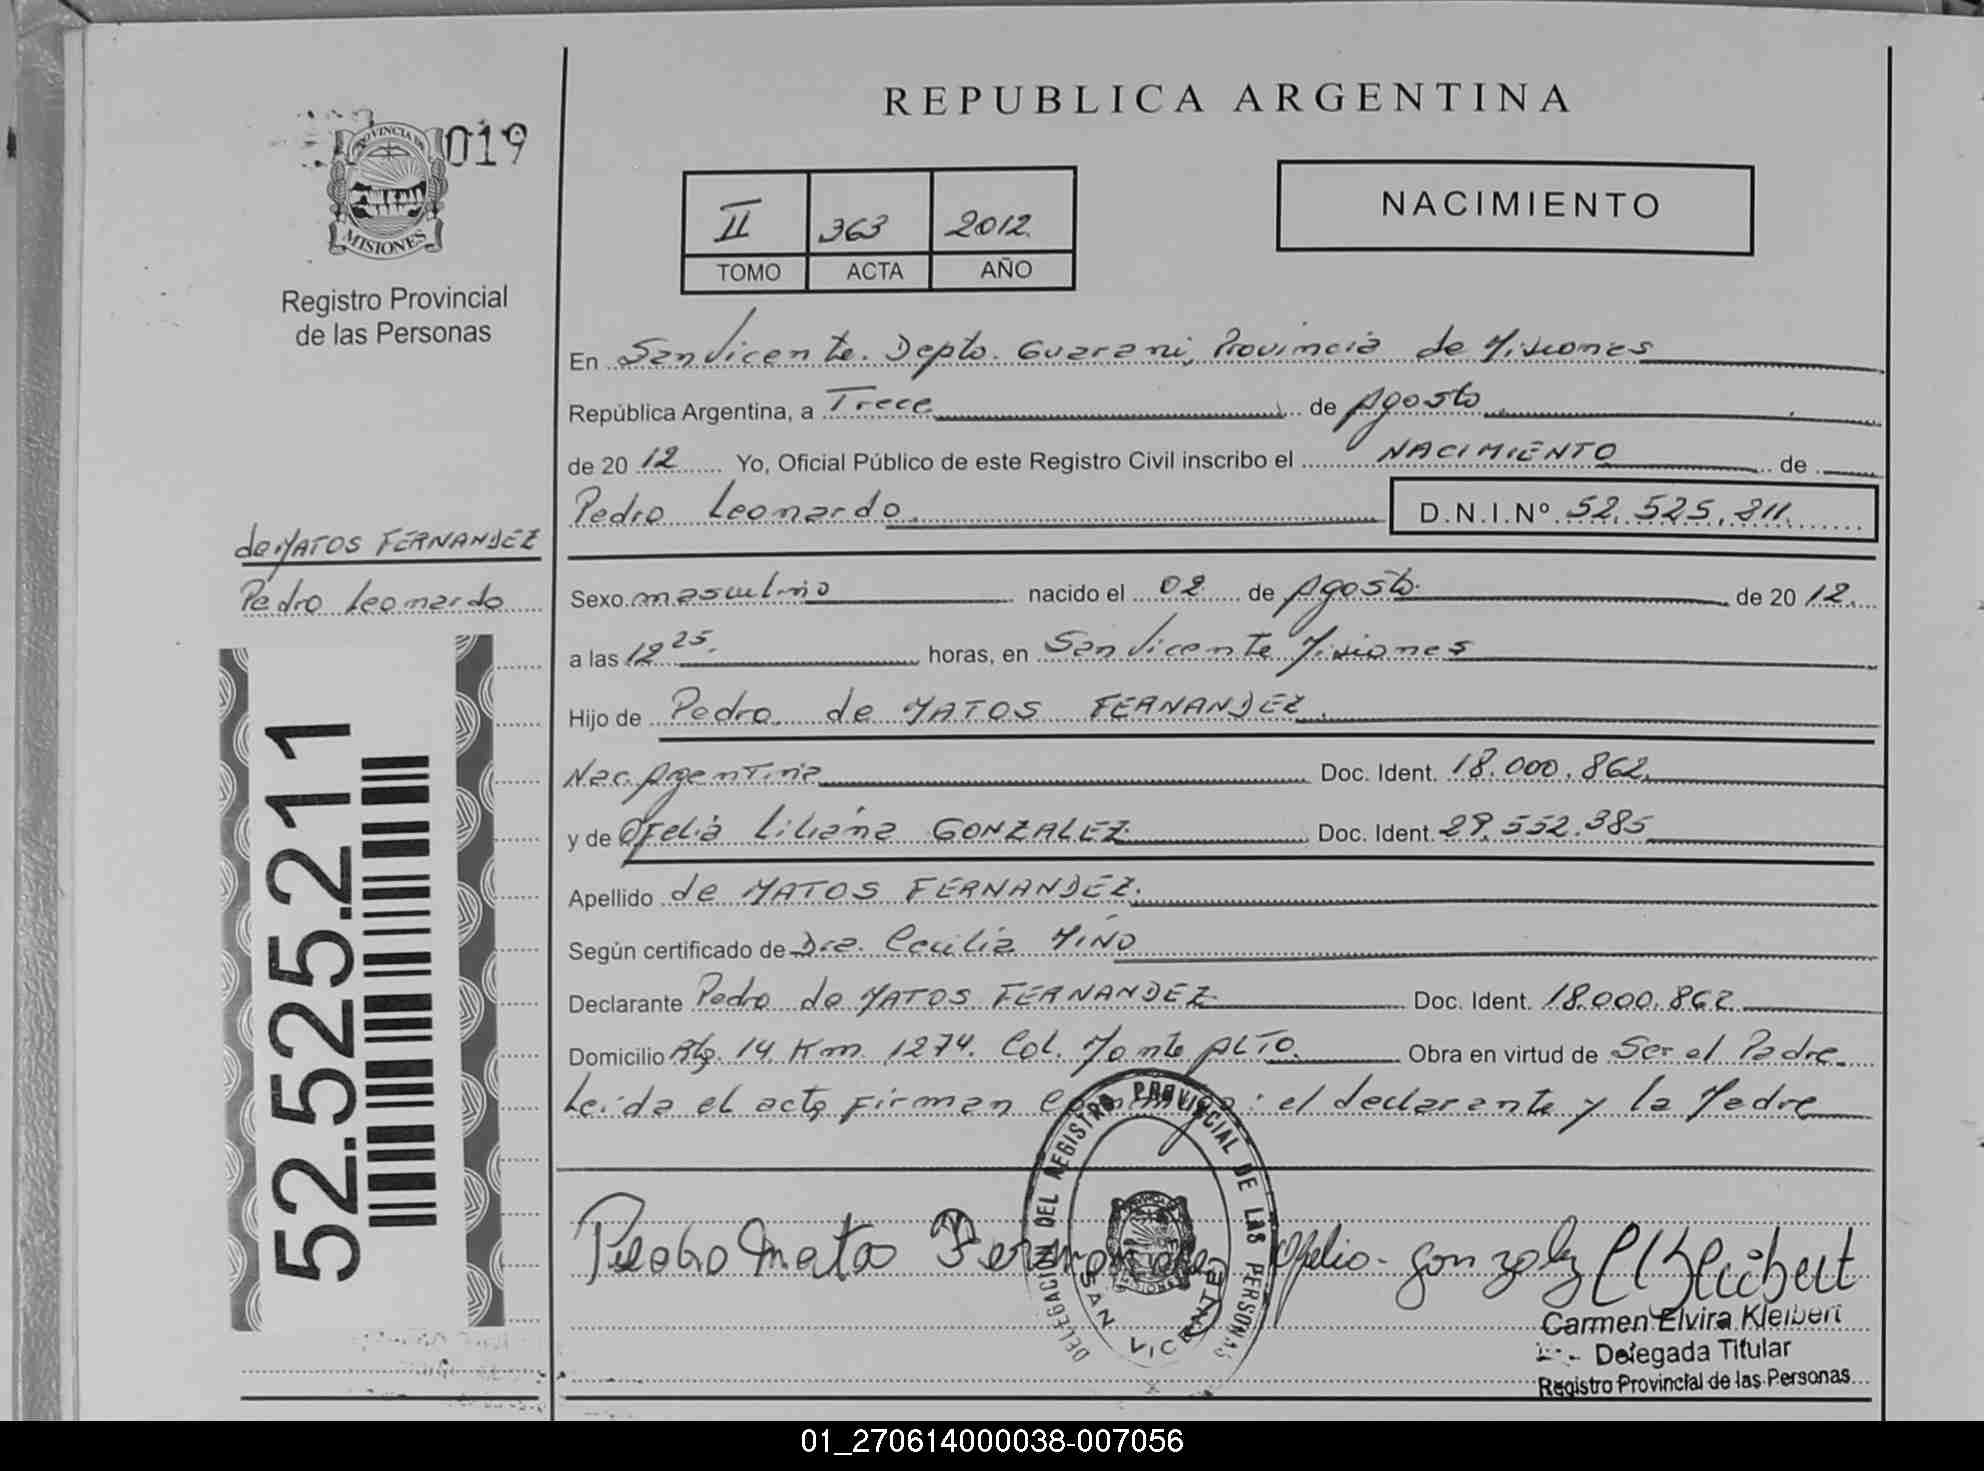 REPUBLICA ARGENTINA
019
PROVINCIA DE
MISIONES
Registro Provincial
de las Personas
II 363 2012
TOMO ACTA AÑO
NACIMIENTO
En San Vicente. Depto. Guarani, Provincia de Misiones
República Argentina, a Trece de Agosto
de 20 12 Yo, Oficial Público de este Registro Civil inscribo el NACIMIENTO de
Pedro Leonardo D.N.I.Nº 52.525.211
de MATOS FERNANDEZ
Pedro Leonardo
Sexo masculino nacido el 02 de Agosto de 20 12
a las 12 25. horas, en San Vicente Misiones
Hijo de Pedro de MATOS FERNANDEZ
Nac. Argentina Doc. Ident. 18.000.862
y de Ofelia Liliana GONZALEZ Doc. Ident. 29.552.385
Apellido de MATOS FERNANDEZ.
Según certificado de Dra. Cecilia MIÑO
Declarante Pedro de MATOS FERNANDEZ Doc. Ident. 18.000.862
Domicilio Rta. 14 Km 1274. Col. Monte ALTO. Obra en virtud de Ser el Padre
Leida el acta firman conmigo: el declarante y la Madre
52.525.211
DELEGACION DEL REGISTRO PROVINCIAL DE LAS PERSONAS
SAN VICENTE
Ofelia Gonzalez
Carmen Elvira Kleibert
Delegada Titular
Registro Provincial de las Personas
01_270614000038-007056